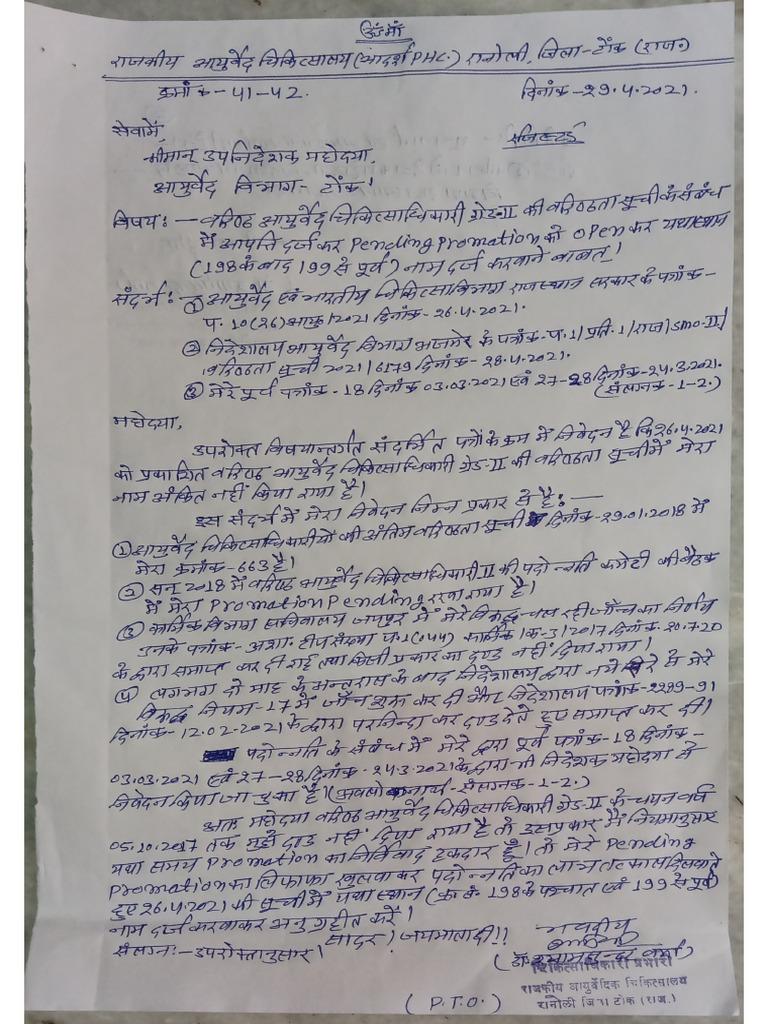 ॐ माँ
राजकीय आयुर्वेद चिकित्सालय (आदर्श PHC.) रानोली, जिला-टोंक (राज.)
क्रमांक - 41-42. दिनांक - 29.4.2021.
सेवामें, रजिस्टर्ड
श्रीमान् उपनिदेशक महोदया,
आयुर्वेद विभाग - टोंक।
विषय: - वरिष्ठ आयुर्वेद चिकित्साधिकारी ग्रेड-II की वरिष्ठता सूची के संबंध
में आपत्ति दर्ज कर Pending Promation को open कर यथास्थान
(198 के बाद 199 से पूर्व) नाम दर्ज करवाने बाबत।
संदर्भ: - ① आयुर्वेद एवं भारतीय चिकित्सा विभाग राजस्थान सरकार के पत्रांक -
प. 10(26) आयु/2021 दिनांक - 26.4.2021.
② निदेशालय आयुर्वेद विभाग अजमेर के पत्रांक - प.1/प्रति.1/राज/SMO-II/
वरिष्ठता सूची 2021/6179 दिनांक - 28.4.2021.
③ मेरे पूर्व पत्रांक - 18 दिनांक 03.03.2021 एवं 27-28 दिनांक - 24.3.2021.
(संलग्नक - 1-2.)
महोदया,
उपरोक्त विषयान्तर्गत संदर्भित पत्रों के क्रम में निवेदन है कि 26.4.2021
को प्रकाशित वरिष्ठ आयुर्वेद चिकित्साधिकारी ग्रेड-II की वरिष्ठता सूची में मेरा
नाम अंकित नहीं किया गया है।
इस संदर्भ में मेरा निवेदन निम्न प्रकार से है: -
① आयुर्वेद चिकित्साधिकारीयों की अंतिम वरिष्ठता सूची दिनांक - 29.01.2018 में
मेरा क्रमांक - 663 है।
② सन् 2018 में वरिष्ठ आयुर्वेद चिकित्साधिकारी II की पदोन्नति कमेटी की बैठक
में मेरा Promation Pending रखा गया है।
③ कार्मिक विभाग सचिवालय जयपुर में मेरे विरुद्ध चल रही जाँच का निर्णय
उनके पत्रांक - अशा. टीप संख्या प.1(044) कार्मिक/क-3/2017 दिनांक - 20.7.20
के द्वारा समाप्त कर दी गई तथा किसी प्रकार का दण्ड नहीं दिया गया।
④ लगभग दो माह के अन्तराल के बाद निदेशालय द्वारा नये सिरे से मेरे
विरुद्ध नियम - 17 में जाँच शुरू कर दी और निदेशालय पत्रांक - 2299-91
दिनांक - 12.02.2021 के द्वारा परनिन्दा कर दण्ड देते हुए समाप्त कर दी।
पदोन्नति के संबंध में मेरे द्वारा पूर्व पत्रांक - 18 दिनांक -
03.03.2021 एवं 27-28 दिनांक - 24.3.2021 के द्वारा श्री निदेशक महोदया से
निवेदन किया जा चुका है। (अवलोकनार्थ - संलग्नक - 1-2.)
अतः महोदया वरिष्ठ आयुर्वेद चिकित्साधिकारी ग्रेड-II के चयन वर्ष
05.10.2017 तक मुझे दण्ड नहीं दिया गया है तो इस प्रकार मैं नियमानुसार
यथा समय Promation का निर्विवाद हकदार हूँ। तो मेरे Pending
Promation का लिफाफा खुलवाकर पदोन्नति का लाभ तत्काल दिलवाते
हुए 26.4.2021 की सूची में यथा स्थान (क्र.सं. 198 के पश्चात एवं 199 से पूर्व)
नाम दर्ज करवाकर अनुग्रहीत करें।
सादर! जयमाताजी!!
संलग्न: - उपरोक्तानुसार। भवदीय
चिकित्साधिकारी प्रभारी
राजकीय आयुर्वेदिक चिकित्सालय
रानोली जिला टोंक (राज.)
(P.T.O.)